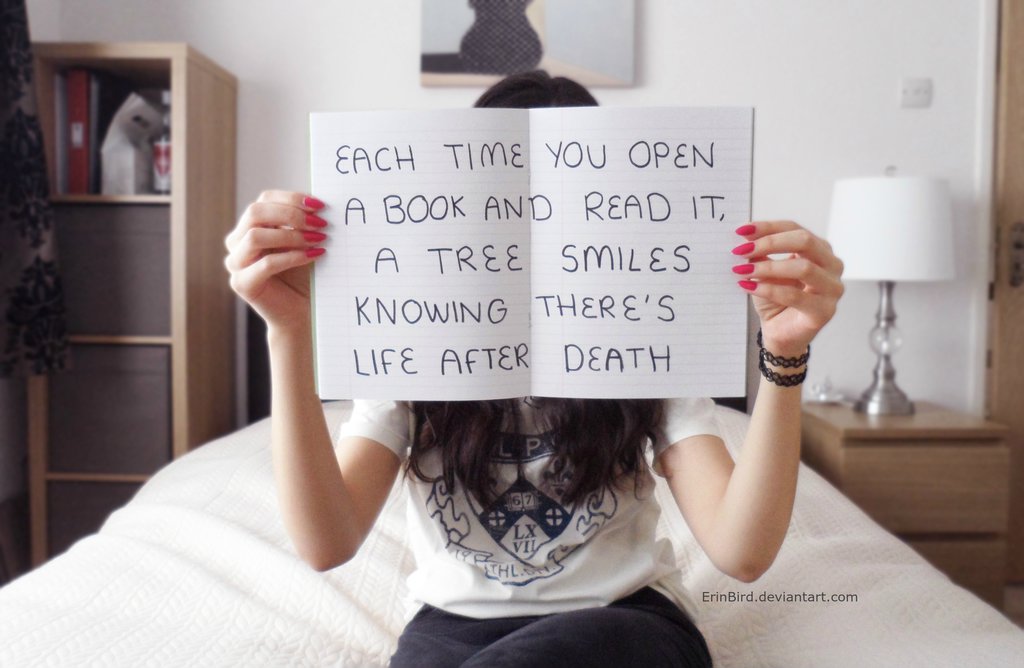 EACH TIME YOU OPEN
A BOOK AND READ IT,
A TREE SMILES
KNOWING THERE'S
LIFE AFTER DEATH
LP
67
LX
VII
ErinBird.deviantart.com